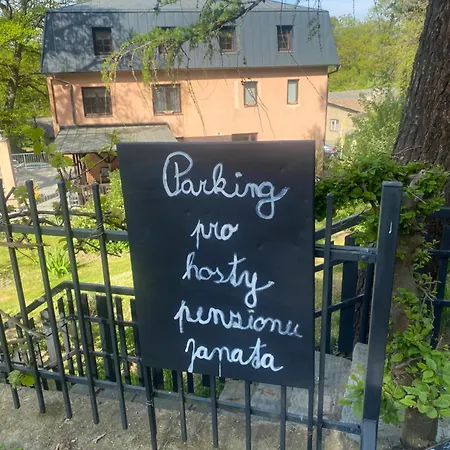 Parking
pro
hosty
penzionu
Janata